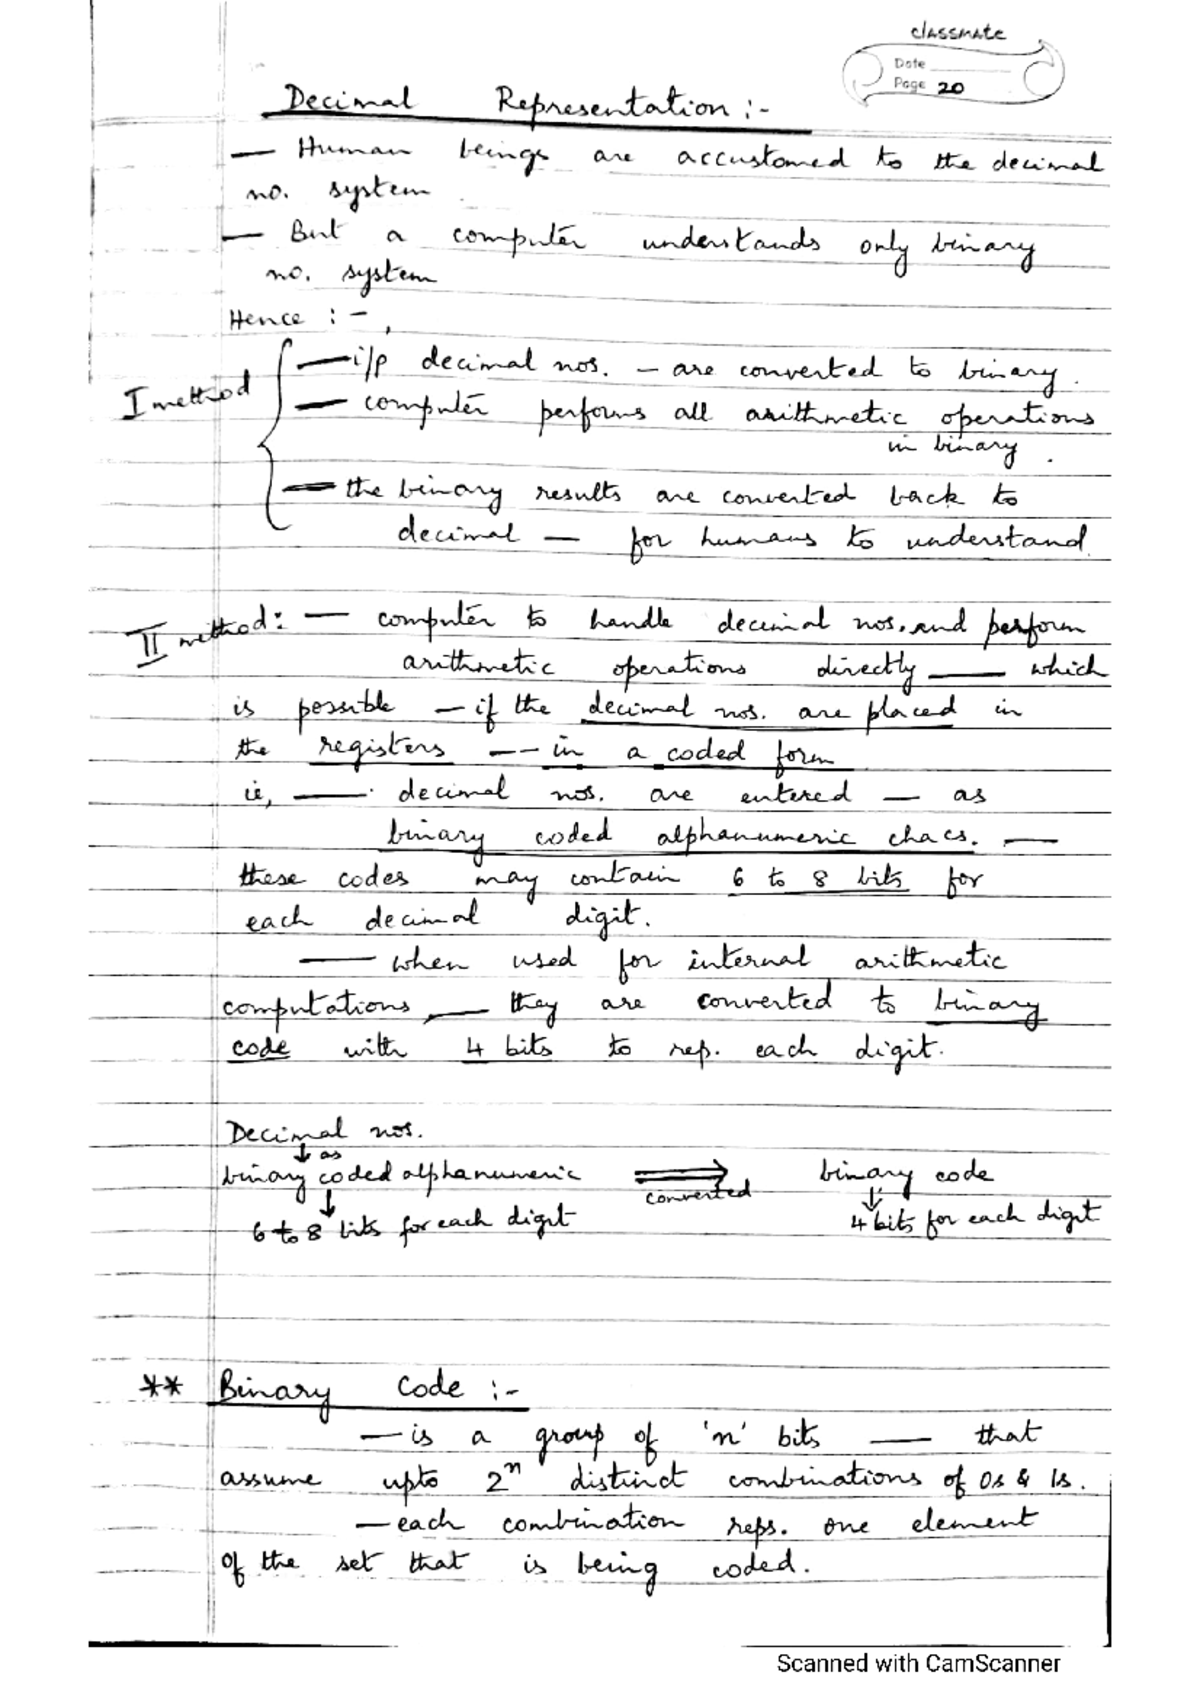 classmate
Date
Page 20
Decimal Representation :-
— Human beings are accustomed to the decimal
no. system
— But a computer understands only binary
no. system
Hence :- ,
I method
— i/p decimal nos. — are converted to binary.
— computer performs all arithmetic operations
in binary.
— the binary results are converted back to
decimal — for humans to understand.
II method: — computer to handle decimal nos. and perform
arithmetic operations directly — which
is possible — if the decimal nos. are placed in
the registers —— in a coded form
ie, — decimal nos. are entered — as
binary coded alphanumeric chacs. —
these codes may contain 6 to 8 bits for
each decimal digit.
— when used for internal arithmetic
computations, — they are converted to binary
code with 4 bits to rep. each digit.
Decimal nos.
↓ as
binary coded alphanumeric ⇒ binary code
converted
↓ ↓
6 to 8 bits for each digit 4 bits for each digit
** Binary Code :-
— is a group of 'n' bits — that
assume upto 2ⁿ distinct combinations of 0s & 1s.
— each combination reps. one element
of the set that is being coded.
Scanned with CamScanner